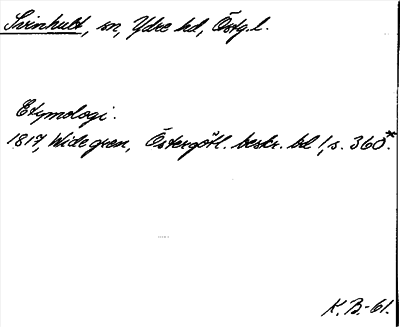 Svinhult, sn, Ydre hd, Östg.l.
Etymologi.
1817, Widegren, Östergötl. beskr. bd 1, s. 360*.
K.B.-61.